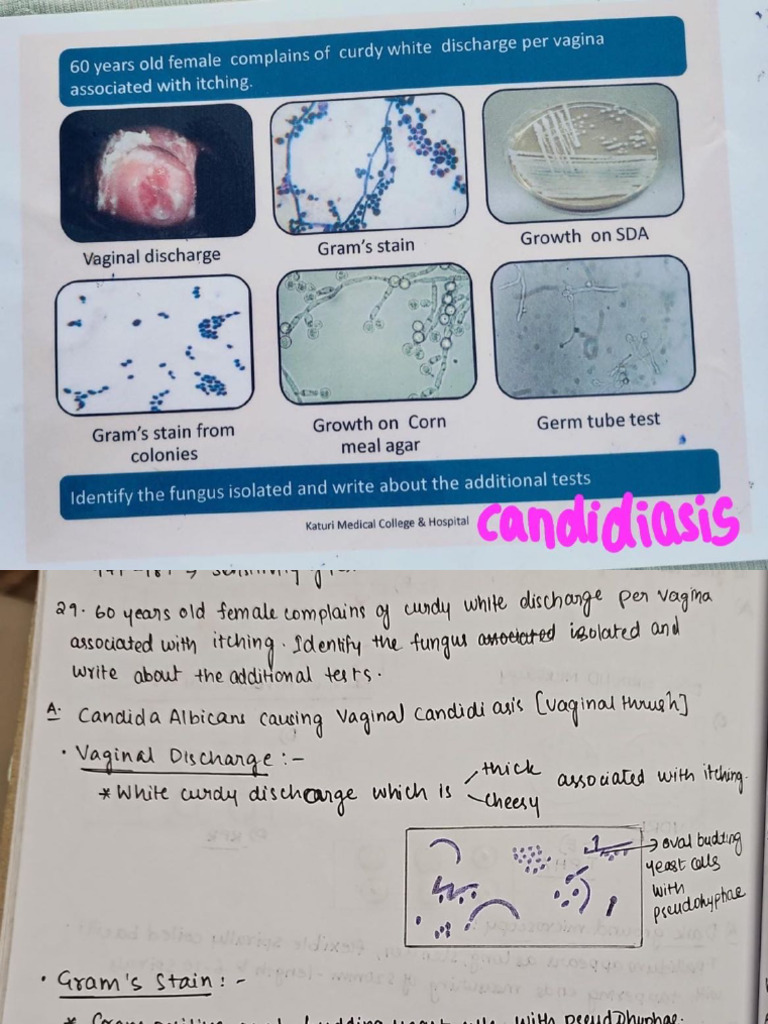 60 years old female complains of curdy white discharge per vagina
associated with itching.
Vaginal discharge
Gram's stain
Growth on SDA
Gram's stain from
colonies
Growth on Corn
meal agar
Germ tube test
Identify the fungus isolated and write about the additional tests
Katuri Medical College & Hospital
candidiasis
29. 60 years old female complains of curdy white discharge per vagina
associated with itching. Identify the fungus associated isolated and
write about the additional tests.
A. Candida Albicans causing Vaginal Candidiasis [Vaginal thrush]
• Vaginal Discharge :-
* White curdy discharge which is thick
cheesy
associated with itching.
→ oval budding
yeast cells
with
pseudohyphae
• Gram's Stain : -
budding yeast cells with pseudohyphae.